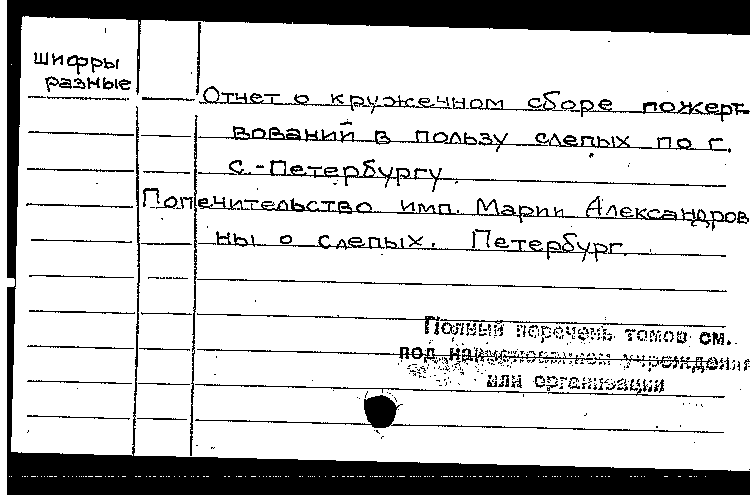 Шифры
разные
Отчет о кружечном сборе пожерт-
вований в пользу слепых по г.
С.-Петербургу.
Попечительство имп. Марии Александров
ны о слепых. Петербург.
Полный перечень томов см.
под наименованием учреждения
или организации